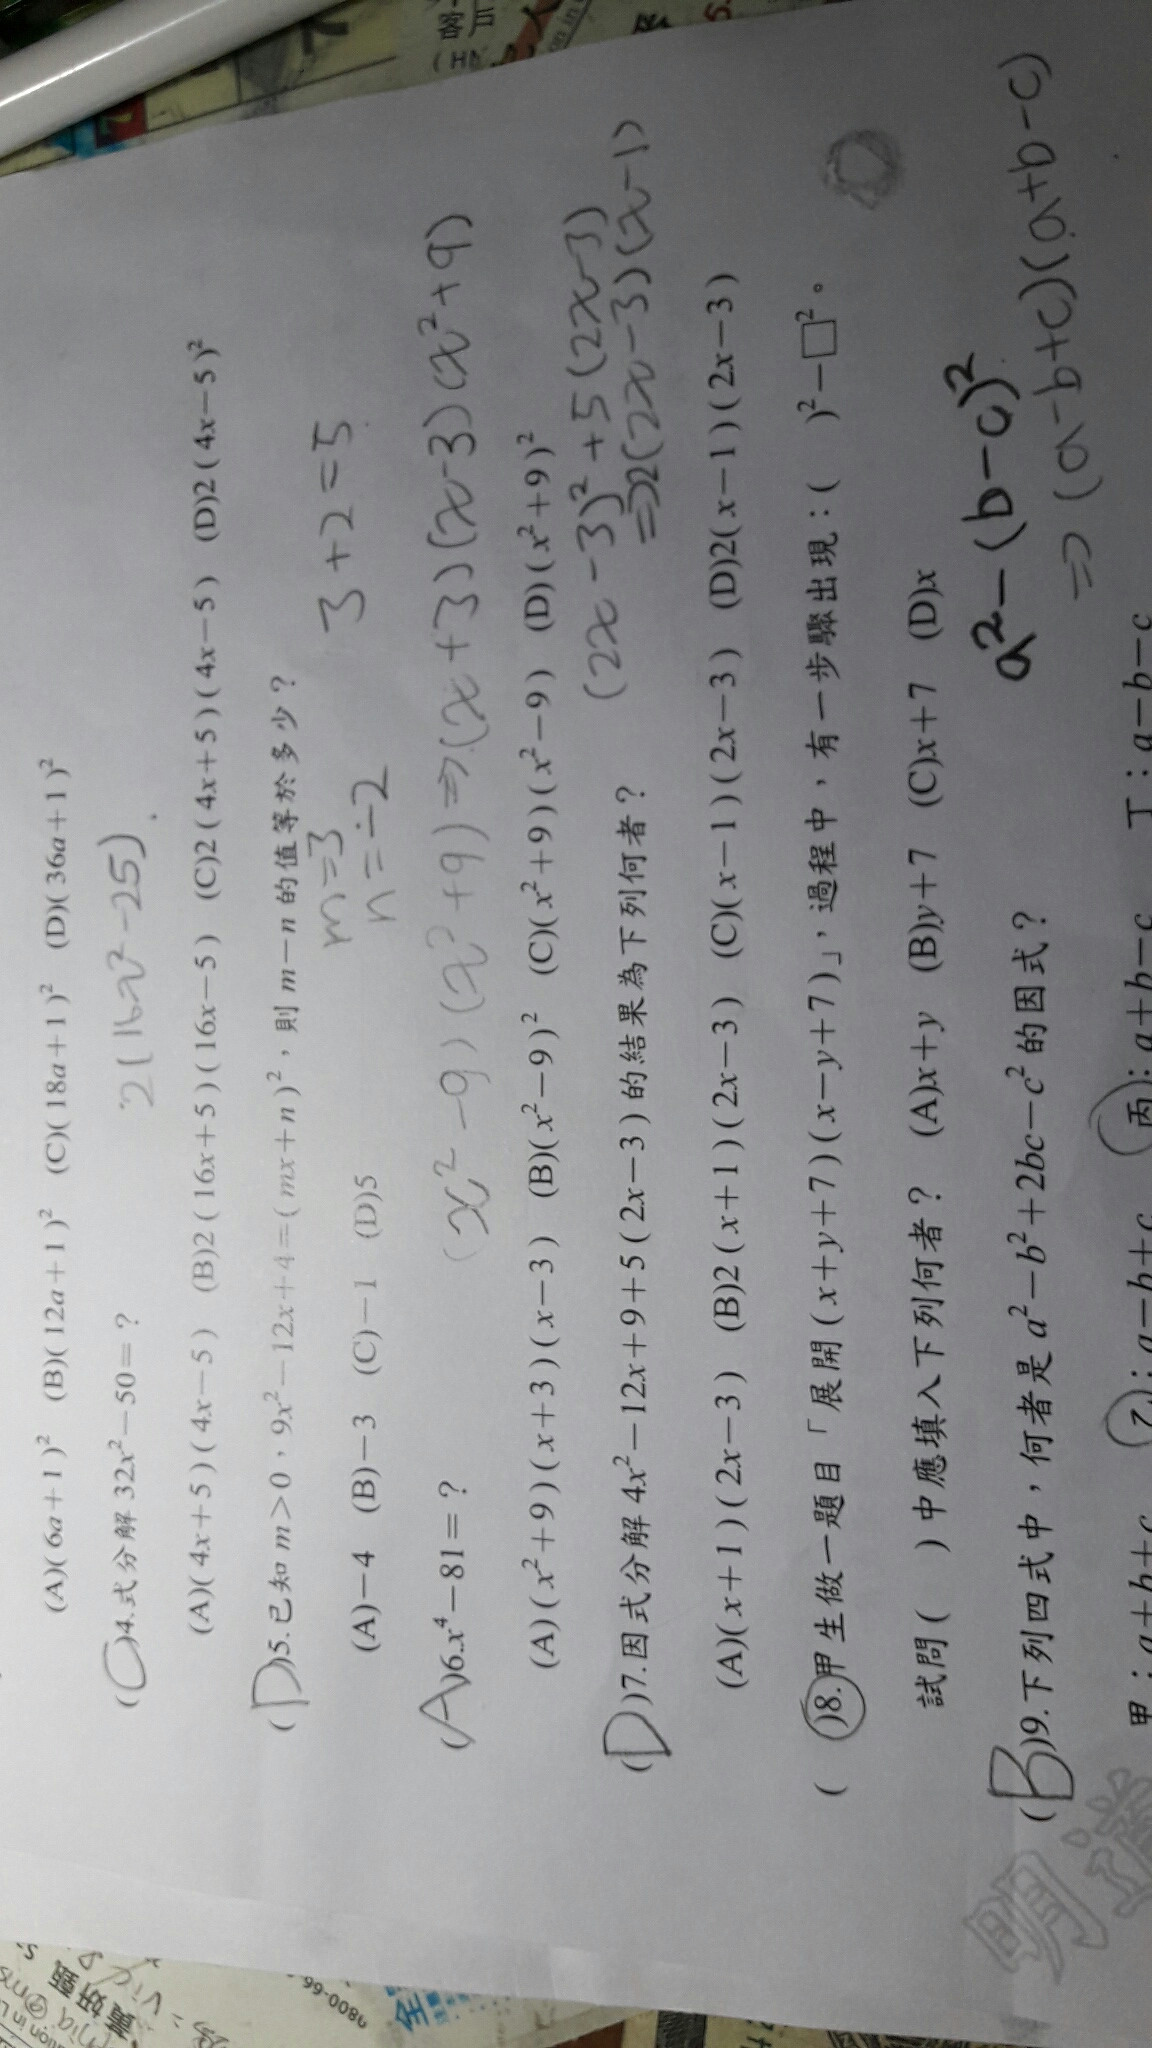 (A)(6a+1)² (B)(12a+1)² (C)(18a+1)² (D)(36a+1)²
(C)4.式分解 32x²−50=？
2(16x²−25)
(A)(4x+5)(4x−5) (B)2(16x+5)(16x−5) (C)2(4x+5)(4x−5) (D)2(4x−5)²
(D)5.已知 m>0，9x²−12x+4=(mx+n)²，則 m−n 的值等於多少？
m=3
n=−2
3+2=5
(A)−4 (B)−3 (C)−1 (D)5
(A)6.x⁴−81=？
(x²−9)(x²+9)⇒(x+3)(x−3)(x²+9)
(A)(x²+9)(x+3)(x−3) (B)(x²−9)² (C)(x²+9)(x²−9) (D)(x²+9)²
(D)7.因式分解 4x²−12x+9+5(2x−3)的結果為下列何者？
(2x−3)²+5(2x−3)
⇒2(2x−3)(x−1)
(A)(x+1)(2x−3) (B)2(x+1)(2x−3) (C)(x−1)(2x−3) (D)2(x−1)(2x−3)
( )8.甲生做一題目「展開(x+y+7)(x−y+7)」，過程中，有一步驟出現：( )²−□²。
試問( )中應填入下列何者？ (A)x+y (B)y+7 (C)x+7 (D)x
(B)9.下列四式中，何者是 a²−b²+2bc−c² 的因式？
a²−(b−c)²
⇒(a−b+c)(a+b−c)
甲：a+b+c 乙：a−b+c 丙：a+b−c 丁：a−b−c
明道
0800-66
全
黃妍甄